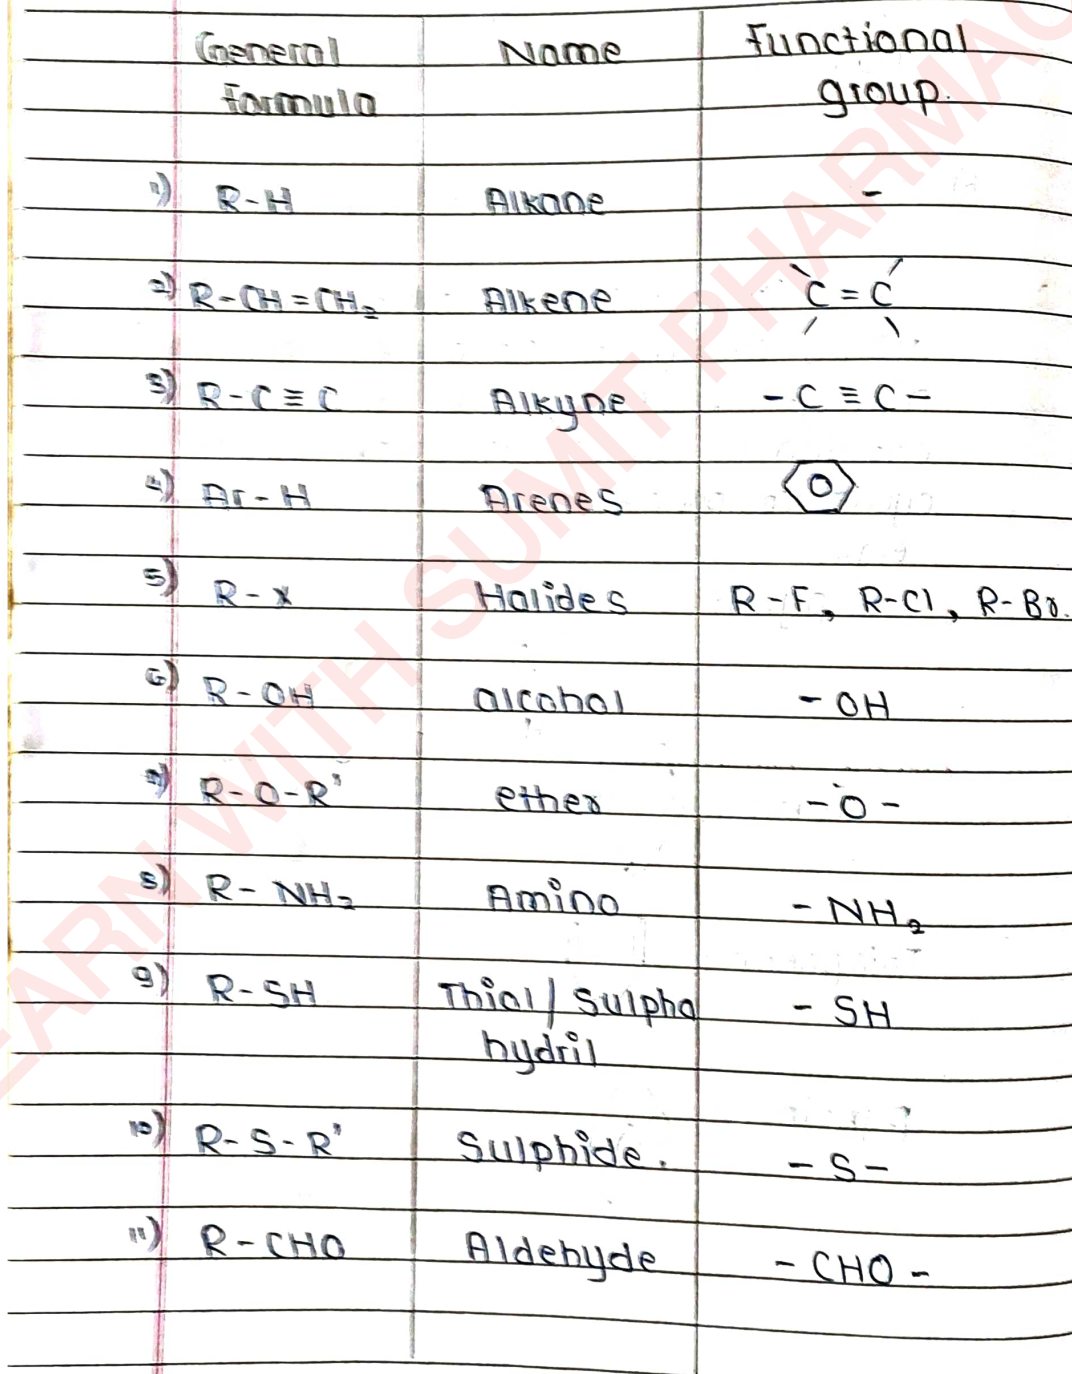 General formula | Name | Functional group.
1) R-H | Alkane | -
2) R-CH=CH₂ | Alkene | C=C
3) R-C≡C | Alkyne | -C≡C-
4) Ar-H | Arenes
5) R-X | Halides | R-F, R-Cl, R-Br.
6) R-OH | alcohol | -OH
7) R-O-R' | ether | -O-
8) R-NH₂ | Amino | -NH₂
9) R-SH | Thiol/Sulpho hydril | -SH
10) R-S-R' | Sulphide. | -S-
11) R-CHO | Aldehyde | -CHO-
LEARN WITH SUMIT PHARMAC